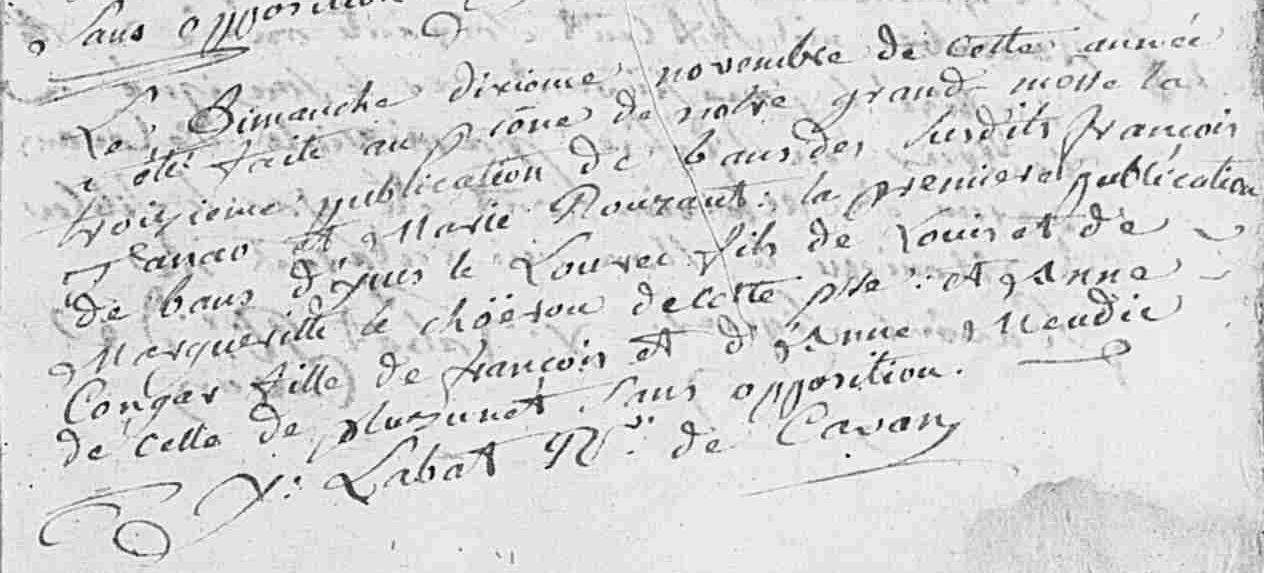 Sans opposition
Le Dimanche dixieme novembre de cette année
a été faite au prône de notre grand messe la
troizieme publication de bans des susdits françois
et Marie Rouzaut : la premiere publication
de bans d'yves le Louzec fils de Louis et de
Margueritte le de cette psse : et Anne
Congar fille de françois et d'Anne
de celle de pluzunet sans opposition.
y : Labat Rr. de Cavan